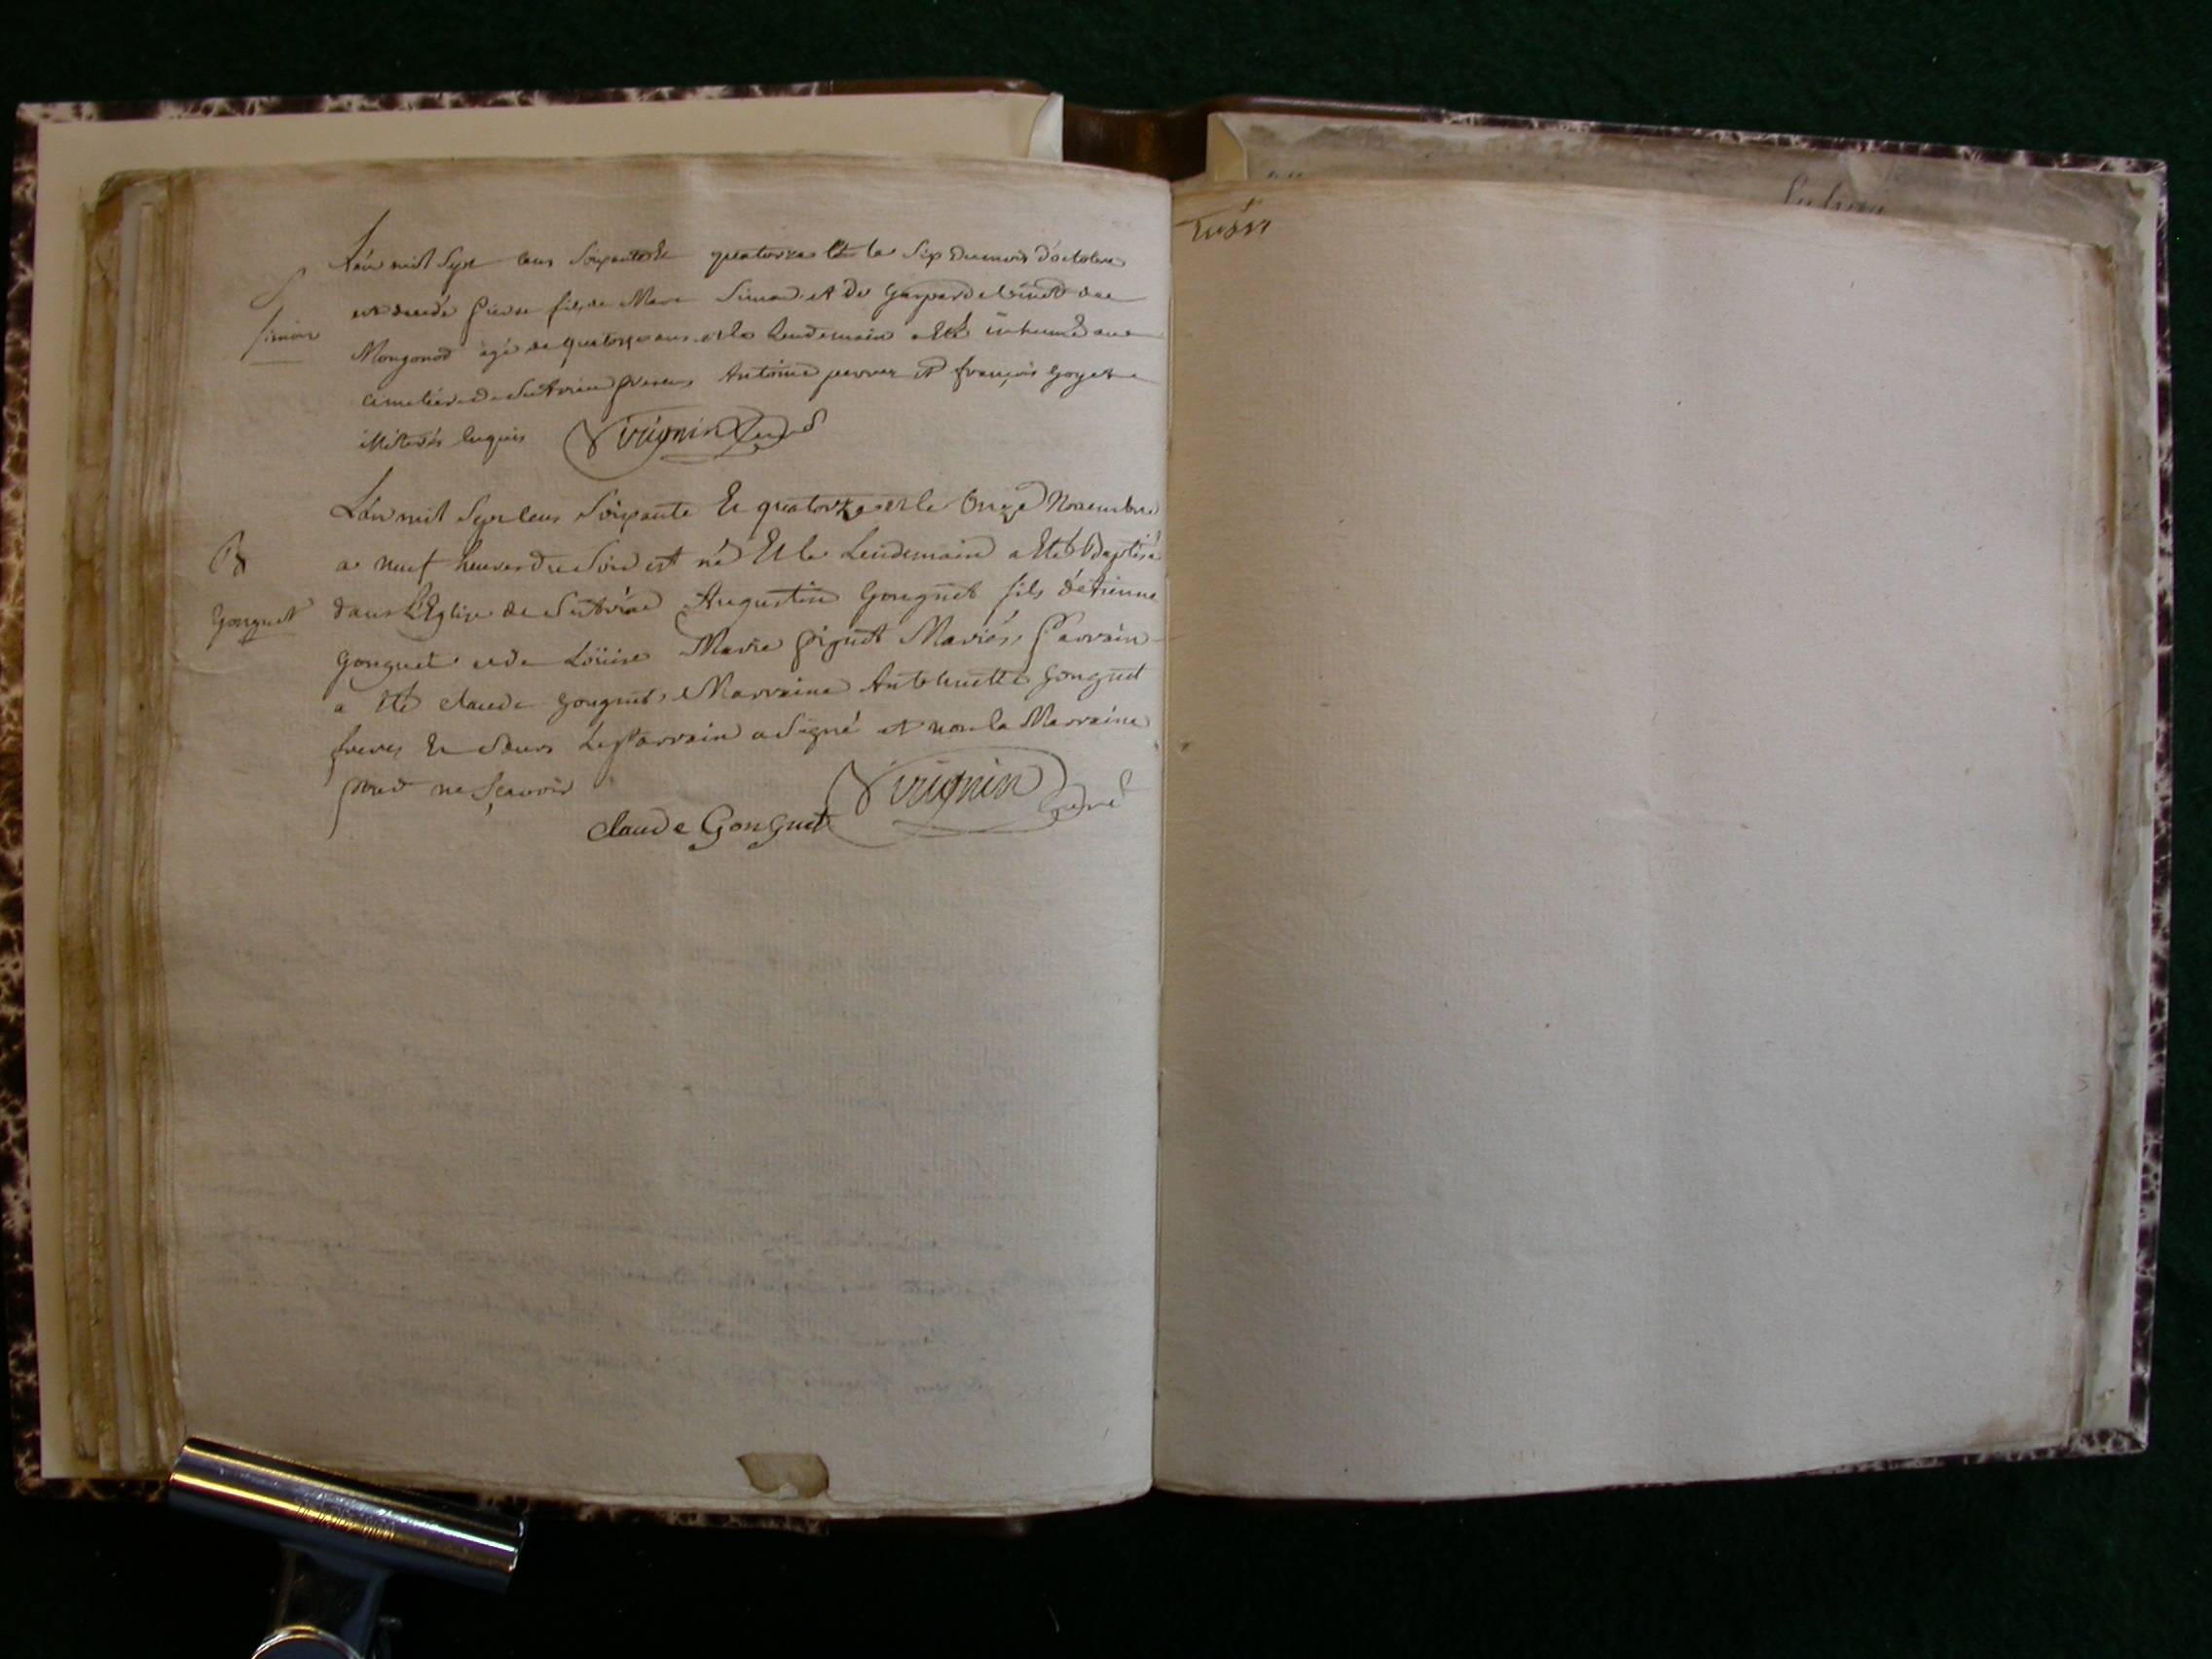 S
simon
L'an mil Sept cens soixante Et quatorze Et le Six du mois d'octobre
est decedé pierre fils de Marc Simon et de Gasparde binet de
Mongonod agé de quatorze ans et le lendemain a Eté inhumé au
cimetiere de Sutrieu presens Antoine perrier et françois goyet
illiterés Requis Virignin Curé
B
Gonguet
L'an mil Sept cens Soixante Et quatorze et le Onze Novembre
a neuf heures du Soir est né Et le Lendemain a Eté Baptisé
dans L'Eglise de Sutrieu Augustin Gonguet fils d'Etienne
Gonguet et de Loüise Marie piguet Mariés, Parrain
a Eté claude gonguet, Marraine Antoinette Gonguet
freres Et Sœurs Le parrain a Signé et non la Marraine
pour ne Sçavoir
Virignin Curé
claude Gonguet